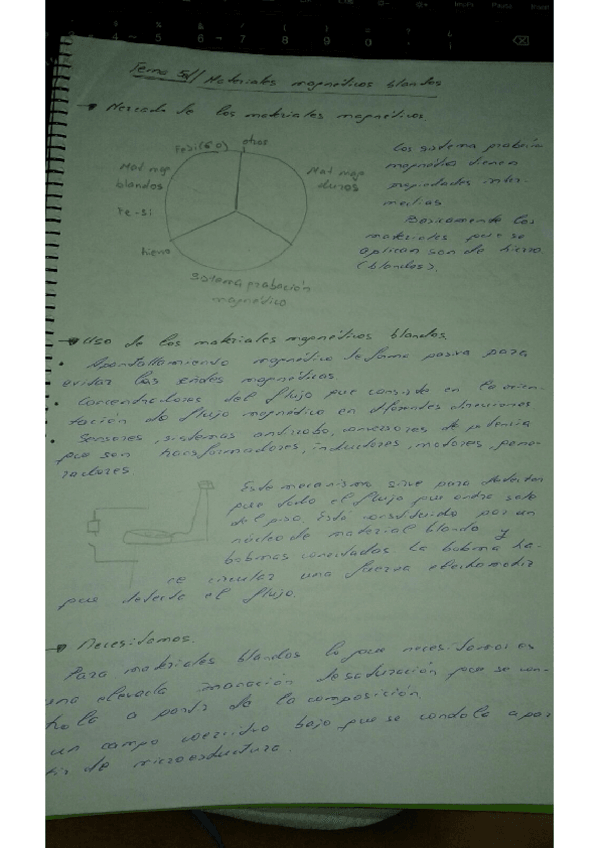 Tema 5// Materiales magnéticos blandos
→ Mercado de los materiales magnéticos
Fe-Si(GO)
otros
Mat mag
blandos
Mat mag
duros
Fe-Si
hierro
Sistema grabación
magnético
Los sistema grabación
magnética tienen
propiedades inter-
medias
Basicamente los
materiales que se
aplican son de hierro
(blandos).
→ Uso de los materiales magnéticos blandos
• Apantallamiento magnético de forma pasiva para
evitar las señales magnéticas.
• Concentradores del flujo que consiste en la orien-
tación do flujo magnético en diferentes direcciones.
• Sensores, sistemas antirrobo, conversores de potencia
que son transformadores, inductores, motores, gene-
radores
Este mecanismo sirve para detectar
que todo el flujo que entra sale
del piso. Está constituido por un
núcleo de material blando y
bobinas conectadas La bobina ha-
ce circular una fuerza electromotriz
que detecta el flujo.
→ Necesitamos.
Para materiales blandos lo que necesitamos es
una elevada imanación de saturación que se con-
trola a partir de la composición
un campo coercitivo bajo que se controla a par
tir de microestructura.